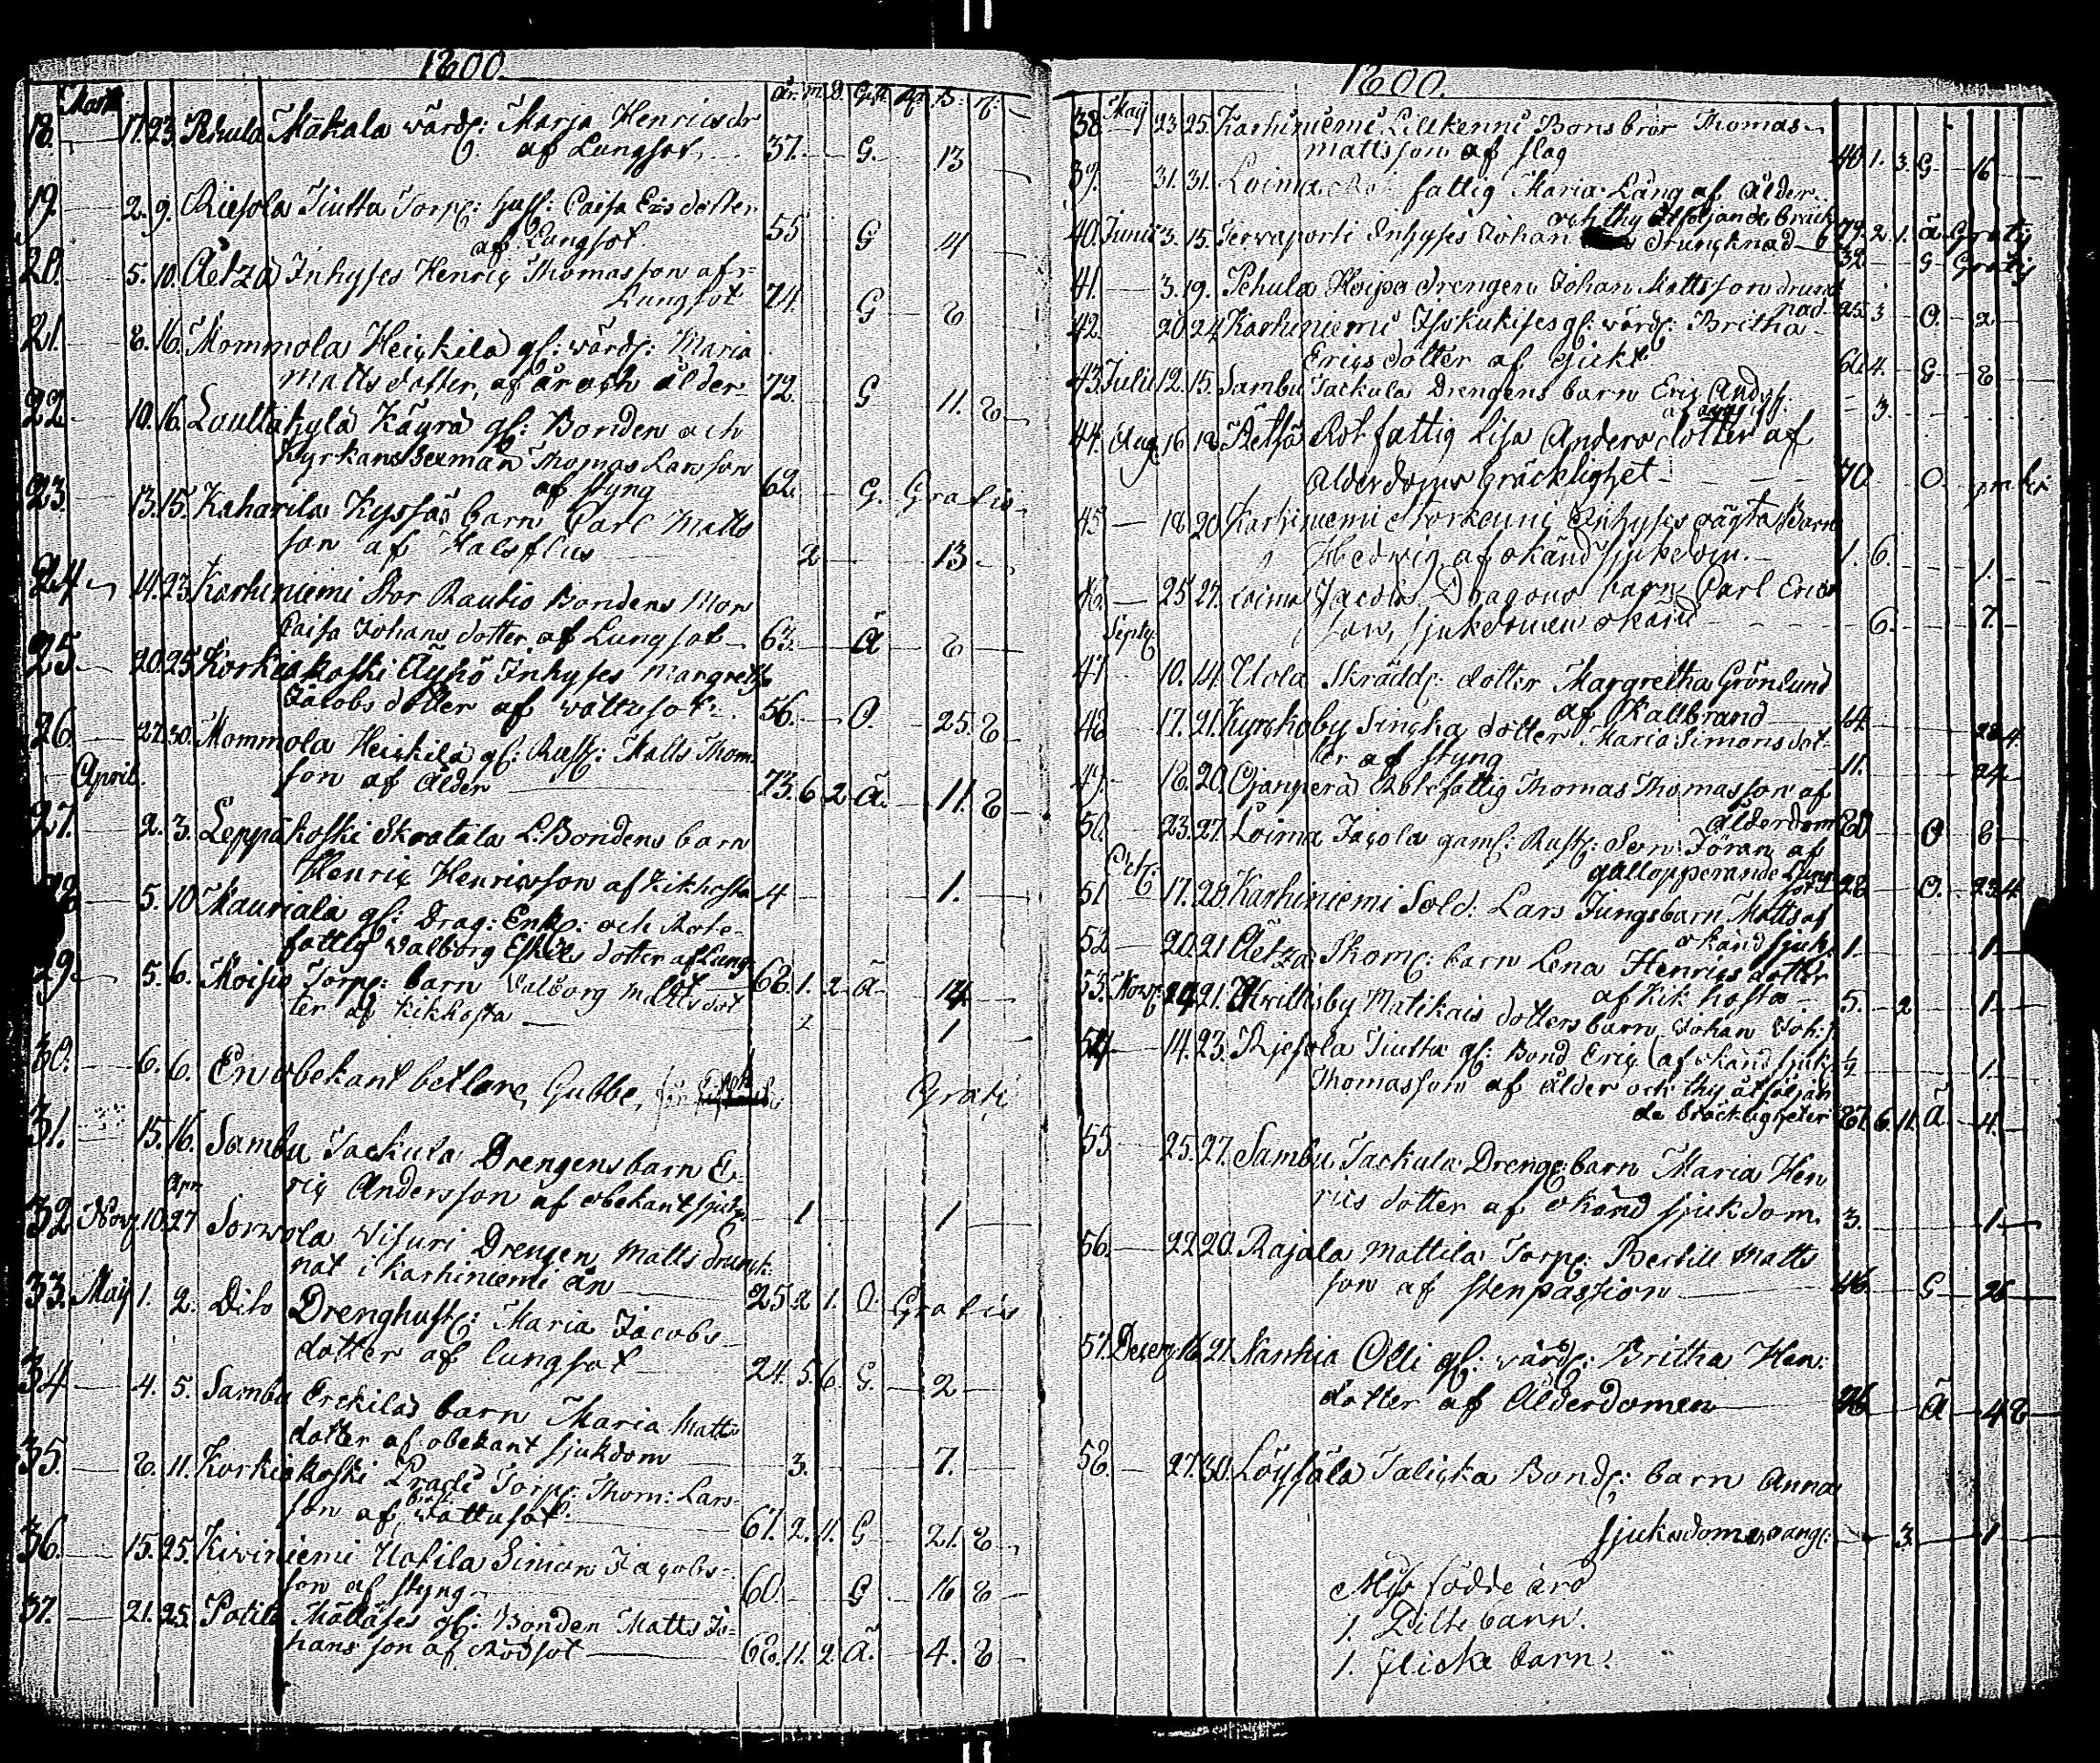 1800.
Mart. År. m. D. Gift. Rf. B. rf.
18. — 17. 23. Pehula Makala wärdf: Marja Henricsdr
af Lungsot 37. G. 13
19. — 2. 9. Riesola Tiutta Torp: hust: Caisa Ersdotter
af Lungsot 55 G 4
20. 5. 10. Aetza Inhyses Henric Thomasson af
Lungsot 74. G 8
21. 8. 16. Mommola Heickilä gl: wärdf: Maria
Mattsdotter, af år och ålder 72. G 11. 8
22. 10. 16. Lauttakylä Käyrä gl: Bonden och
Kyrkans Sexman Thomas Larsson
af styng 62. G. Gratis
23. 13. 15. Kaharila Kyssäs barn Carl Matts
son af Halsflus 2 13
24. 14. 23. Karhiniemi Stor Rautio Bondens Mor
Caisa Johans dotter af Lungsot 63. Ä 8
25. — 20. 25. Korkiakoski Äyhö Inhyses Margretha
Jacobs dotter af wattusot 56. O. 25. 8
26. 27. 30. Mommola Heickilä gl: Rust: Matts Thom:
son af Ålder 73. 6 2 Ä. 11. 8
April.
27. 2. 3. Leppäkoski Skratala L. Bondens barn
Henric Henricsson af Kikhosta 4 1.
28 5. 10 Mauriala gl: Drag: Enk: och Rote-
fattig Walborg Eskils dotter af Lung
sot 68. 1. 2 Ä 14
29. 5. 6. Moisio Torp: barn Walborg Mattsdot
ter af Kikhosta 2 1
30. 6. 6. En obekant betlare, Gubbe, Grati
31. 15. 16. Sambu Jackula Drengens barn E-
ric Andersson af obekant sjukd 1 1
Apr
32. Nov. 10. 27 Sorwola Wisuri Drengen Matts drunck-
nat i Karhiniemi ån 25. 2 1. O. Gratis
33. May 1. 2. Dito Drenghust: Maria Jacobs
dotter af lungsot 24. 5. 6. G. 2
34 4. 5. Sambu Erckilas barn Maria Matts
dotter af obekant sjukdom 3. 7.
35. 8. 11. Korkiakoski Torp: Thom: Lars-
son af wattusot 61. 2. 11. G 21. 8
36. 15. 25. Kiviniemi Uotila Simon Jacobs-
son af styng 60. G 16 8
37. 21. 25. Potila gl: Bonden Matts Jo-
hansson af Rödsot 68. 11. 2 Ä. 4. 8
1800.
38 May 23. 25. Karhiniemi Lillkenni Bonsbror Thomas
Mattsson af slag 40 1. 3. G 16
39. 31. 31. Loima fattig Maria Lång af ålder
och thy åtföljande bräck 79. 2. 1. Ä Gratis
40. Junii 3. 15. Terwaporti Inhyses Johan drungknad 32 G Gratis
41. 3. 19. Pehula Hoipo drengen Johan Mattsson drunk
nad. 25. 3 O. 2
42. 20. 24 Karhiniemi gl: wärdf: Britha
Ericsdotter af gickt 61. 4. G 8
43. Julii 12. 15. Sambu Jackula Drengens barn Eric Anders: 3.
44. Aug. 16 18 Rot fattig Lisa Anders dotter af
ålderdoms bräcklighet 70. O.
45 — 18. 20 Karhiniemi Storkenni Inhyses oägta Barn
Hedwig af okänd sjukdom. 1. 6. 1.
46. — 25 27. Loima Dragons barn Carl Erics
son, sjukdomen okänd 6. 7.
Septr.
47 10. 14. Uola Skrädd: dotter Margretha Grönlund
af Kallbrand 14.
48 17. 21. Kyrckoby Sincka dotter Maria Simonsdot-
ter af styng 11. 24
49. 18. 20. Ojanperä Rotefattig Thomas Thomasson af
ålderdom 80 O 6
50. 23. 27. Loima Jacola gaml: Rust: Son Jöran af
gallopperande Lung
sot 28 O. 23 4
Octr.
51 17. 20 Karhiniemi Sold. Lars Jungs barn Matts af
okänd sjuk: 1 1
52 20. 21 Aetza Skom: barn Lena Henrics dotter
af Kikhosta 5. 2 1
53. Nov. 21. Kwillisby Matikais dotters barn Johan Joh:
(af okänd sjuk: ½ 1.
54 — 14. 23. Riesola Tiutta gl: Bond Eric
Thomasson af ålder och thy åtföljan
de bräckligheter 81. 6. 11. Ä 4.
55 25. 27. Sambu Jackula Drenge barn Maria Hen
rics dotter af okänd sjukdom 3. 1
56. 22. 20. Rajala Mattila Torp: Bertill Matts
son af stenpassion 46. G 26
57. Decemr. 16. 21. Nanhia Olli gl: wärdf: Britha Hen:
dotter af Ålderdomen 76 Ä 48
58. 27. 30. Löysälä Talicka Bond: barn Anna
sjukdomen oang: 3. 1
födde äro
1. Pilte barn.
1. flicke barn.